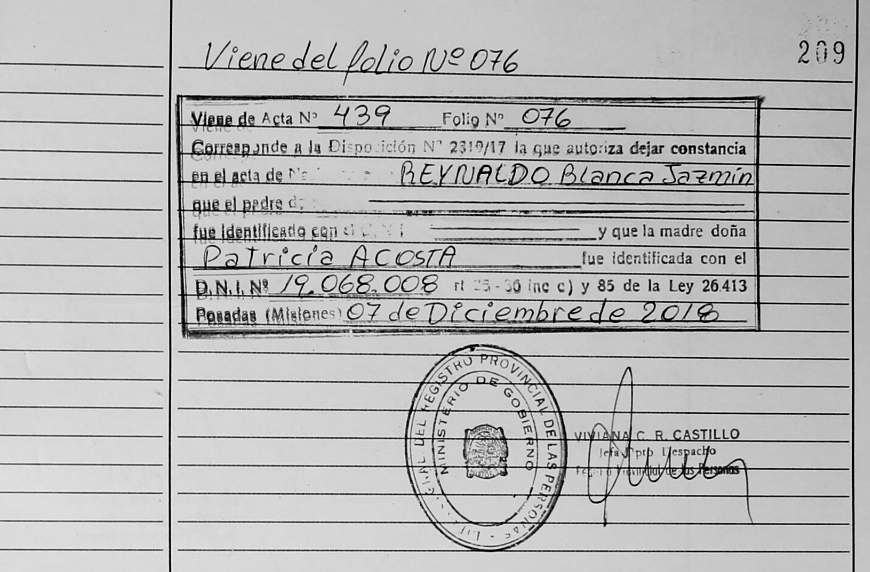 209
Viene del folio Nº 076
Viene de Acta Nº 439 Folio Nº 076
Corresponde a la Disposición Nº 2319/17 la que autoriza dejar constancia
en el acta de REYNALDO Blanca Jazmín
que el padre
fue identificado con el D.N.I. y que la madre doña
Patricia ACOSTA fue identificada con el
D.N.I. Nº 19.068.008 inc c) y 85 de la Ley 26.413
Posadas (Misiones) 07 de Diciembre de 2018
DEL REGISTRO PROVINCIAL DE LAS PERSONAS
MINISTERIO DE GOBIERNO
VIVIANA C. R. CASTILLO
Despacho
Provincial de las Personas